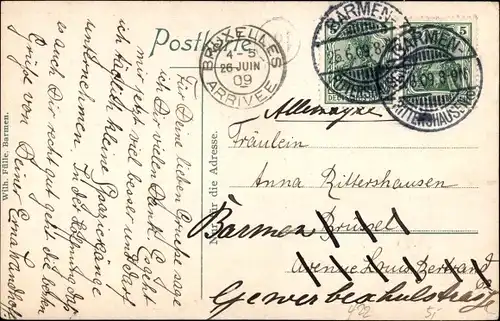 Postkarte
BRUXELLES
4-5
26 JUIN
09
ARRIVEE
BARMEN-
.6.09.8-9N
RITTERSHAUSEN
BARMEN-
.6.09.8-9N
RITTERSHAUSEN
5
Allemagne
Fräulein
Anna Rittershausen
Barmen
Brüssel
Avenue Louis Bertrand
Gewerbeschulstraße
Nur für die Adresse.
Wilh. Fülle, Barmen.
Für Deine lieben Grüsse sage
ich Dir vielen Dank. Es geht
mir jetzt viel besser und darf
ich täglich kleine Spaziergänge
unternehmen. In der Hoffnung das
es auch Dir recht gut geht die besten
Grüße von Deiner Erna